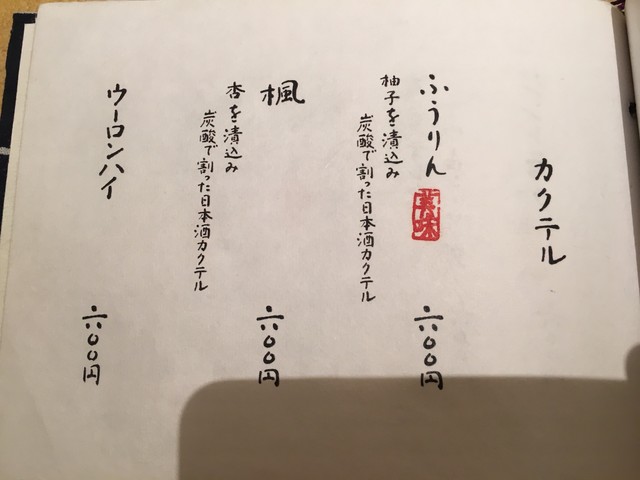 カクテル
ふうりん 美味 六〇〇円
柚子を漬込み
炭酸で割った日本酒カクテル
楓 六〇〇円
杏を漬込み
炭酸で割った日本酒カクテル
ウーロンハイ 六〇〇円